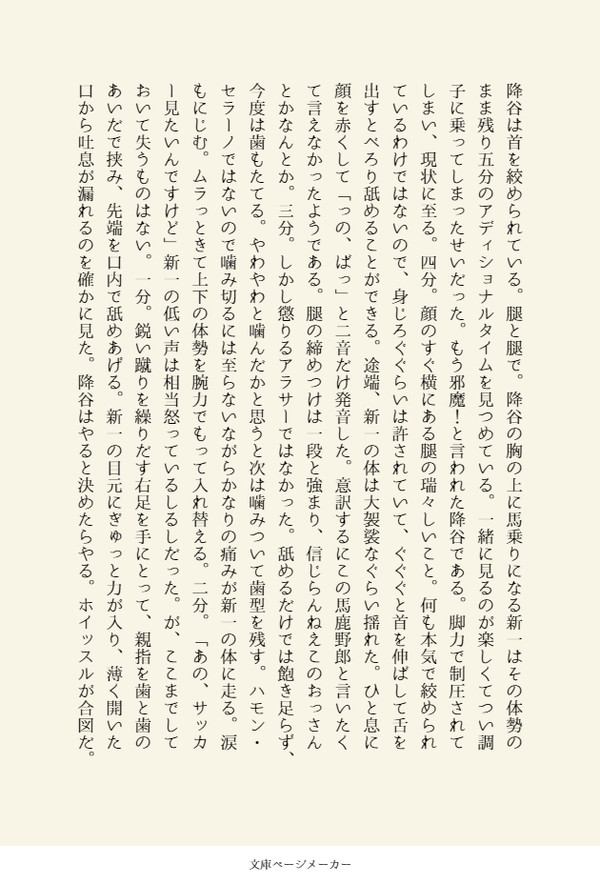 降谷は首を絞められている。腿と腿で。降谷の胸の上に馬乗りになる新一はその体勢の
まま残り五分のアディショナルタイムを見つめている。一緒に見るのが楽しくてつい調
子に乗ってしまったせいだった。もう邪魔！と言われた降谷である。脚力で制圧されて
しまい、現状に至る。四分。顔のすぐ横にある腿の瑞々しいこと。何も本気で絞められ
ているわけではないので、身じろぐぐらいは許されていて、ぐぐぐと首を伸ばして舌を
出すとべろり舐めることができる。途端、新一の体は大袈裟なぐらい揺れた。ひと息に
顔を赤くして「っの、ばっ」と二音だけ発音した。意訳するにこの馬鹿野郎と言いたく
て言えなかったようである。腿の締めつけは一段と強まり、信じらんねえこのおっさん
とかなんとか。三分。しかし懲りるアラサーではなかった。舐めるだけでは飽き足らず、
今度は歯もたてる。やわやわと噛んだかと思うと次は噛みついて歯型を残す。ハモン・
セラーノではないので噛み切るには至らないながらかなりの痛みが新一の体に走る。涙
もにじむ。ムラっときて上下の体勢を腕力でもって入れ替える。二分。「あの、サッカ
ー見たいんですけど」新一の低い声は相当怒っているしるしだった。が、ここまでして
おいて失うものはない。一分。鋭い蹴りを繰りだす右足を手にとって、親指を歯と歯の
あいだで挟み、先端を口内で舐めあげる。新一の目元にぎゅっと力が入り、薄く開いた
口から吐息が漏れるのを確かに見た。降谷はやると決めたらやる。ホイッスルが合図だ。
文庫ページメーカー